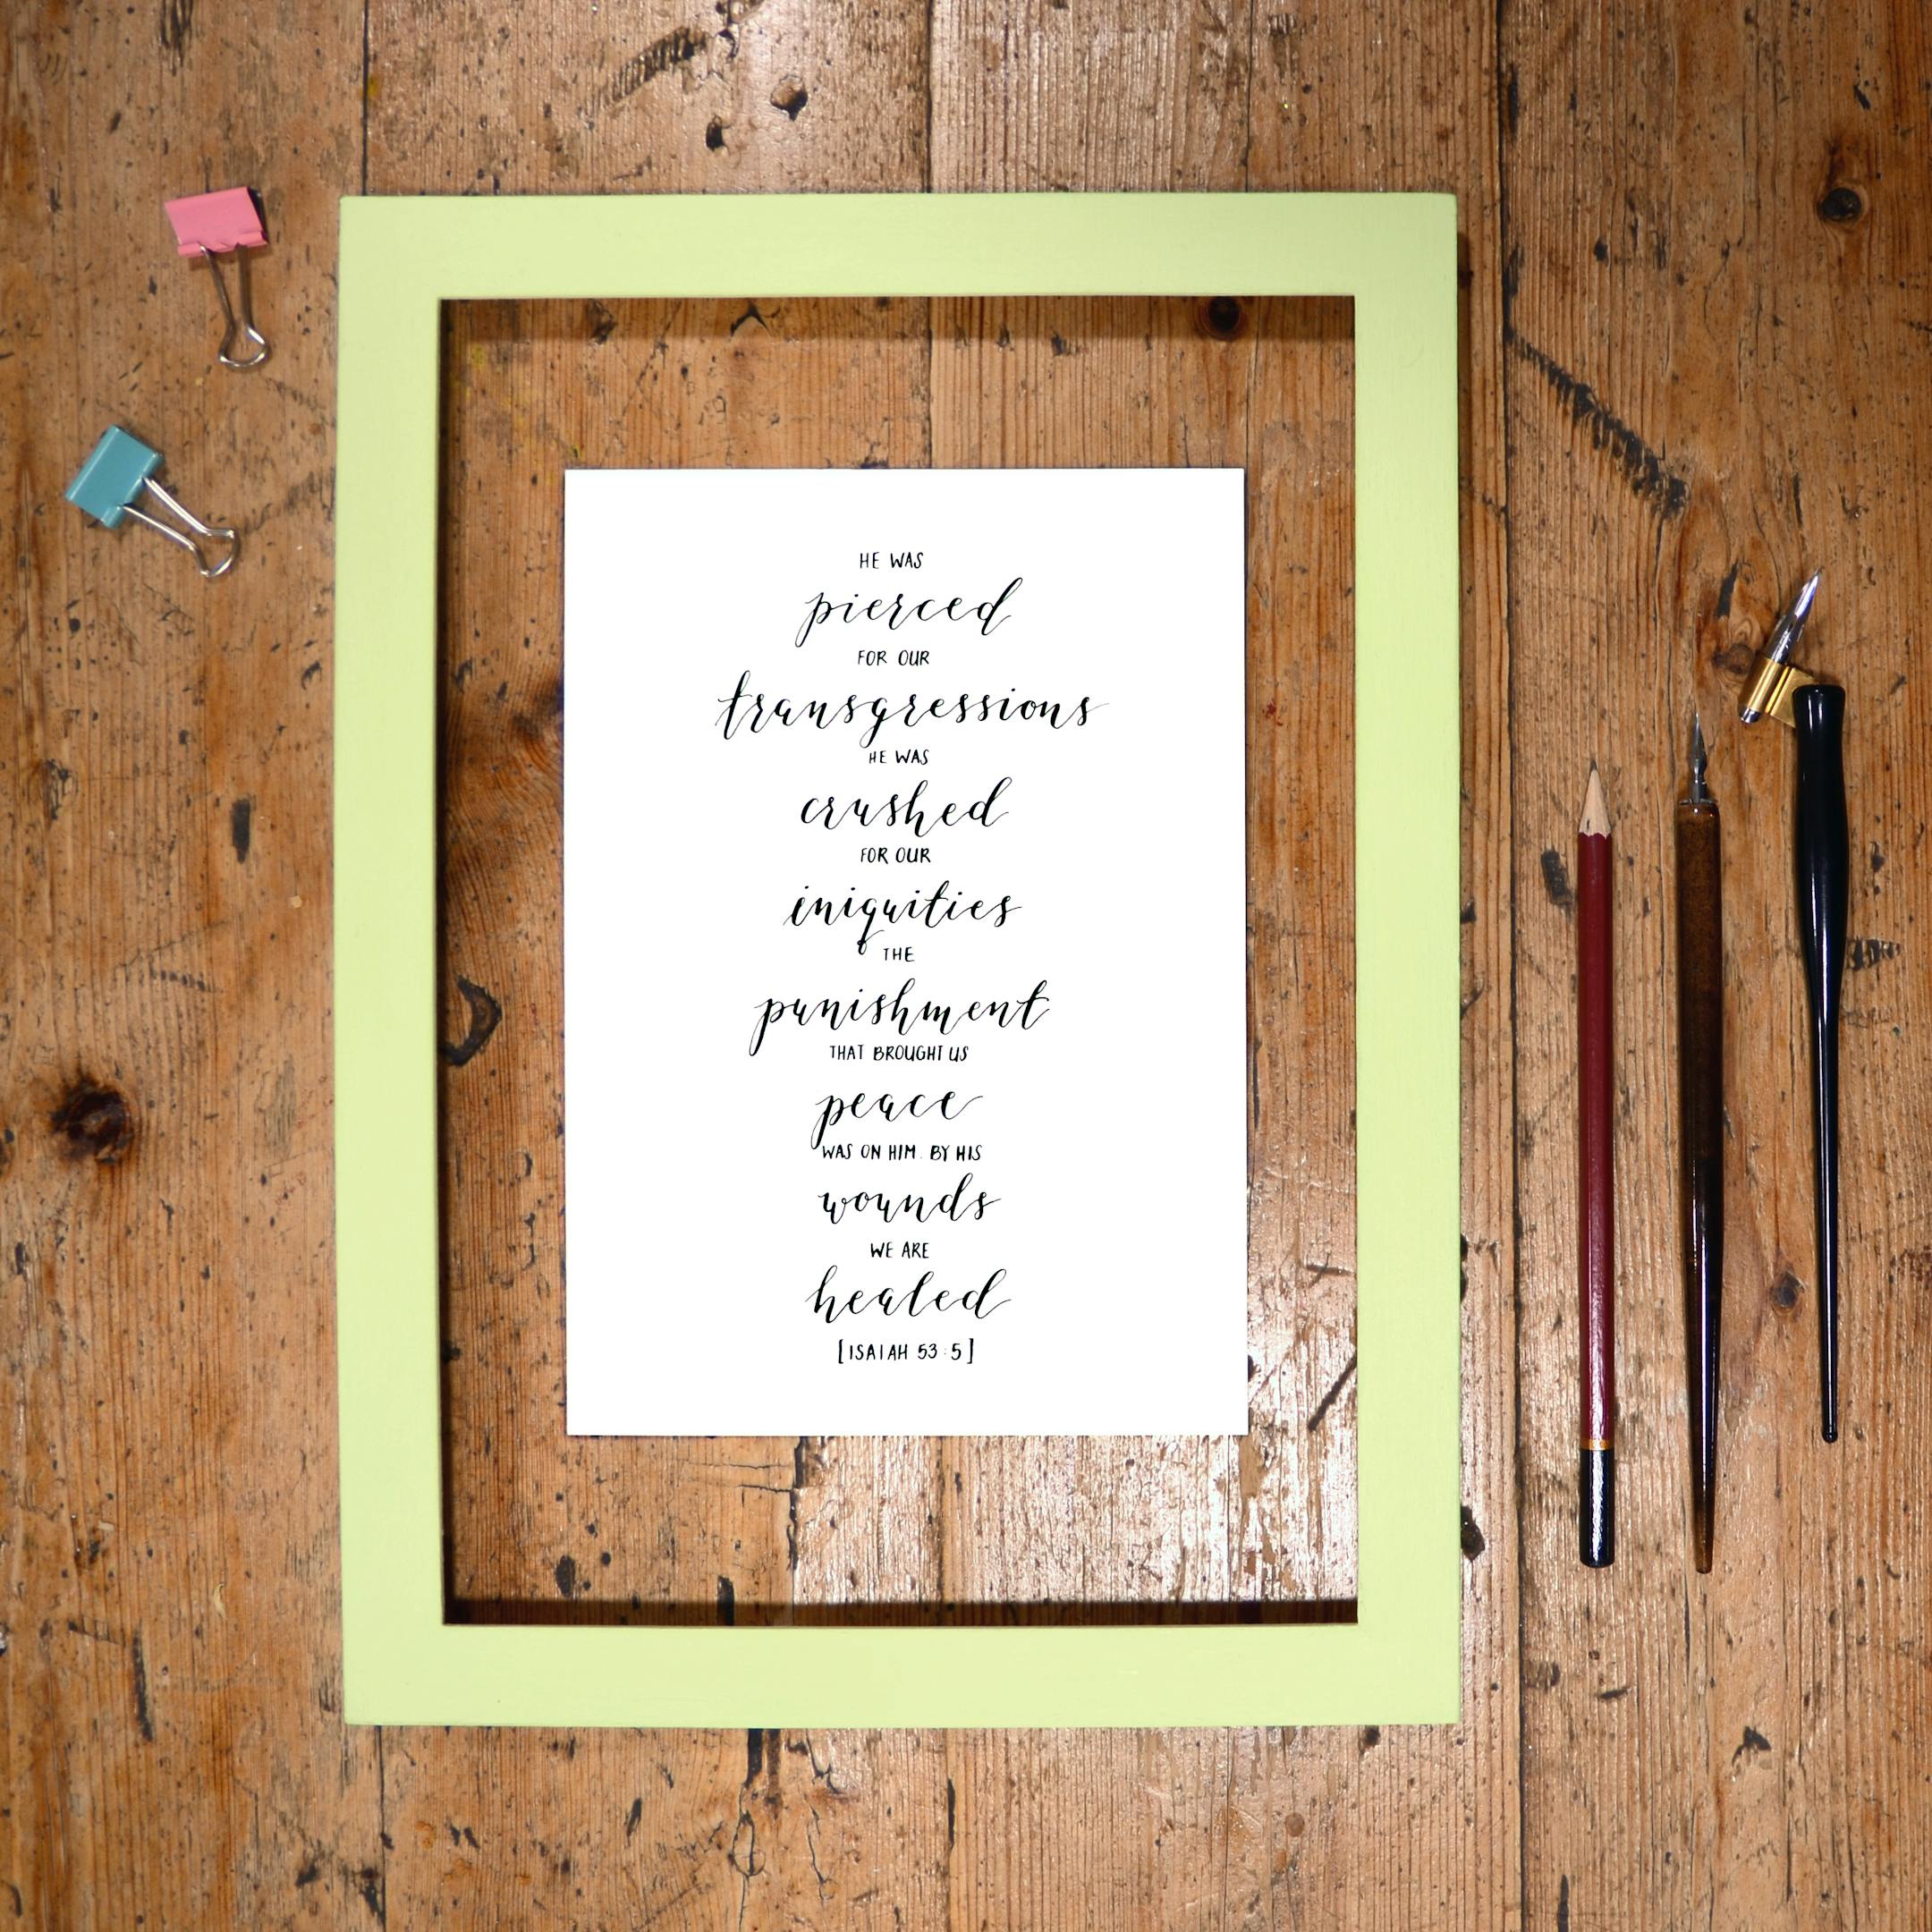 HE WAS
pierced
FOR OUR
transgressions
HE WAS
crushed
FOR OUR
iniquities
THE
punishment
THAT BROUGHT US
peace
WAS ON HIM. BY HIS
wounds
WE ARE
healed
[ISAIAH 53:5]